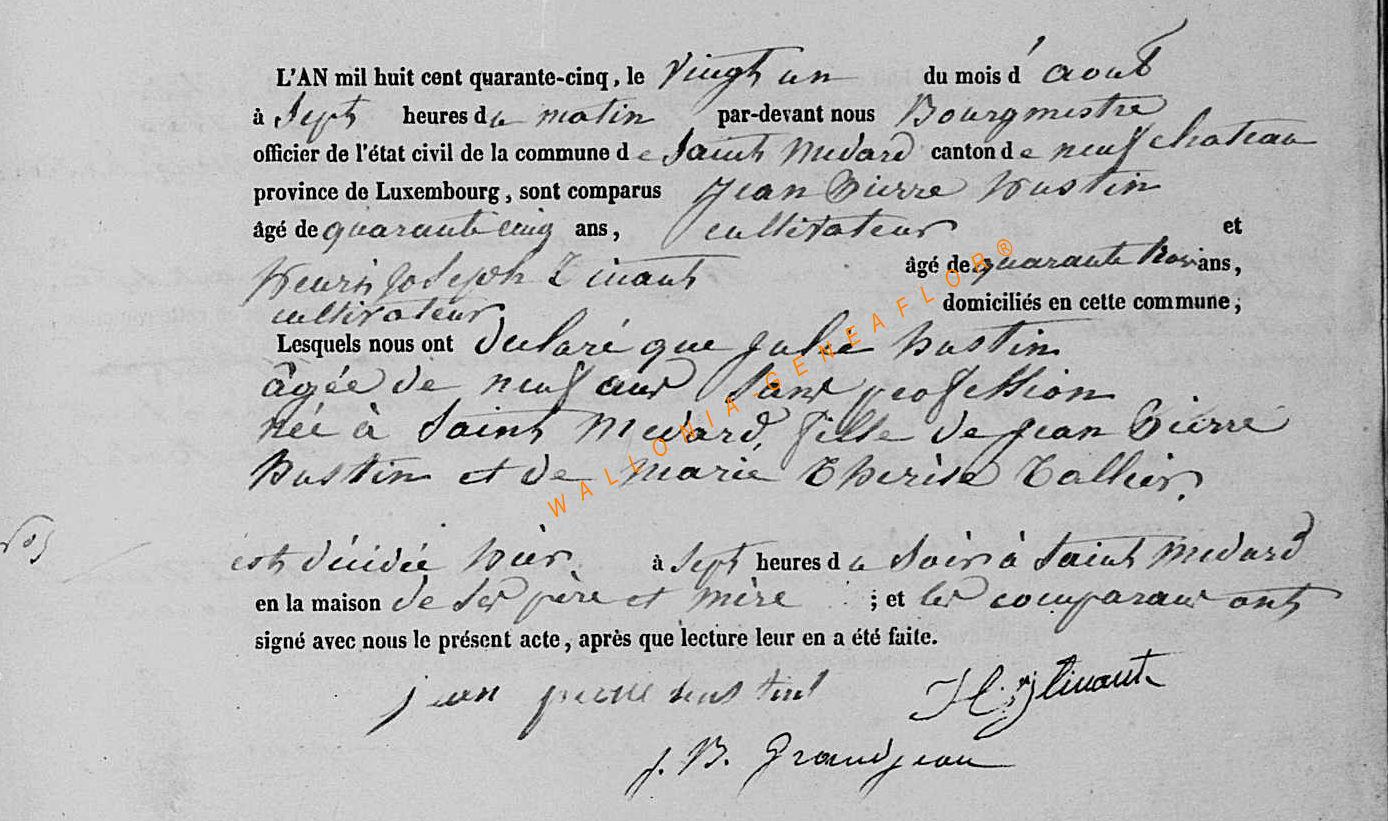 L'AN mil huit cent quarante-cinq, le vingt un du mois d'août
à Sept heures du matin par-devant nous Bourgmestre
officier de l'état civil de la commune de Saint Medard canton de neufchateau
province de Luxembourg, sont comparus Jean Pierre hustin
âgé de quarante cinq ans, cultivateur et
henri Joseph Zinant âgé de quarante trois ans,
cultivateur domiciliés en cette commune;
Lesquels nous ont déclaré que Julie hustin
âgée de neuf ans Sans profession
née à Saint Médard, fille de Jean Pierre
hustin et de Marie Therèse Tallier.
est décédée hier à sept heures du Soir à Saint Medard
en la maison de Ses père et mère ; et les comparans ont
signé avec nous le présent acte, après que lecture leur en a été faite.
jean pierre hustint
J. B. Grandjean
WALLONIA-GENEAFLOR®